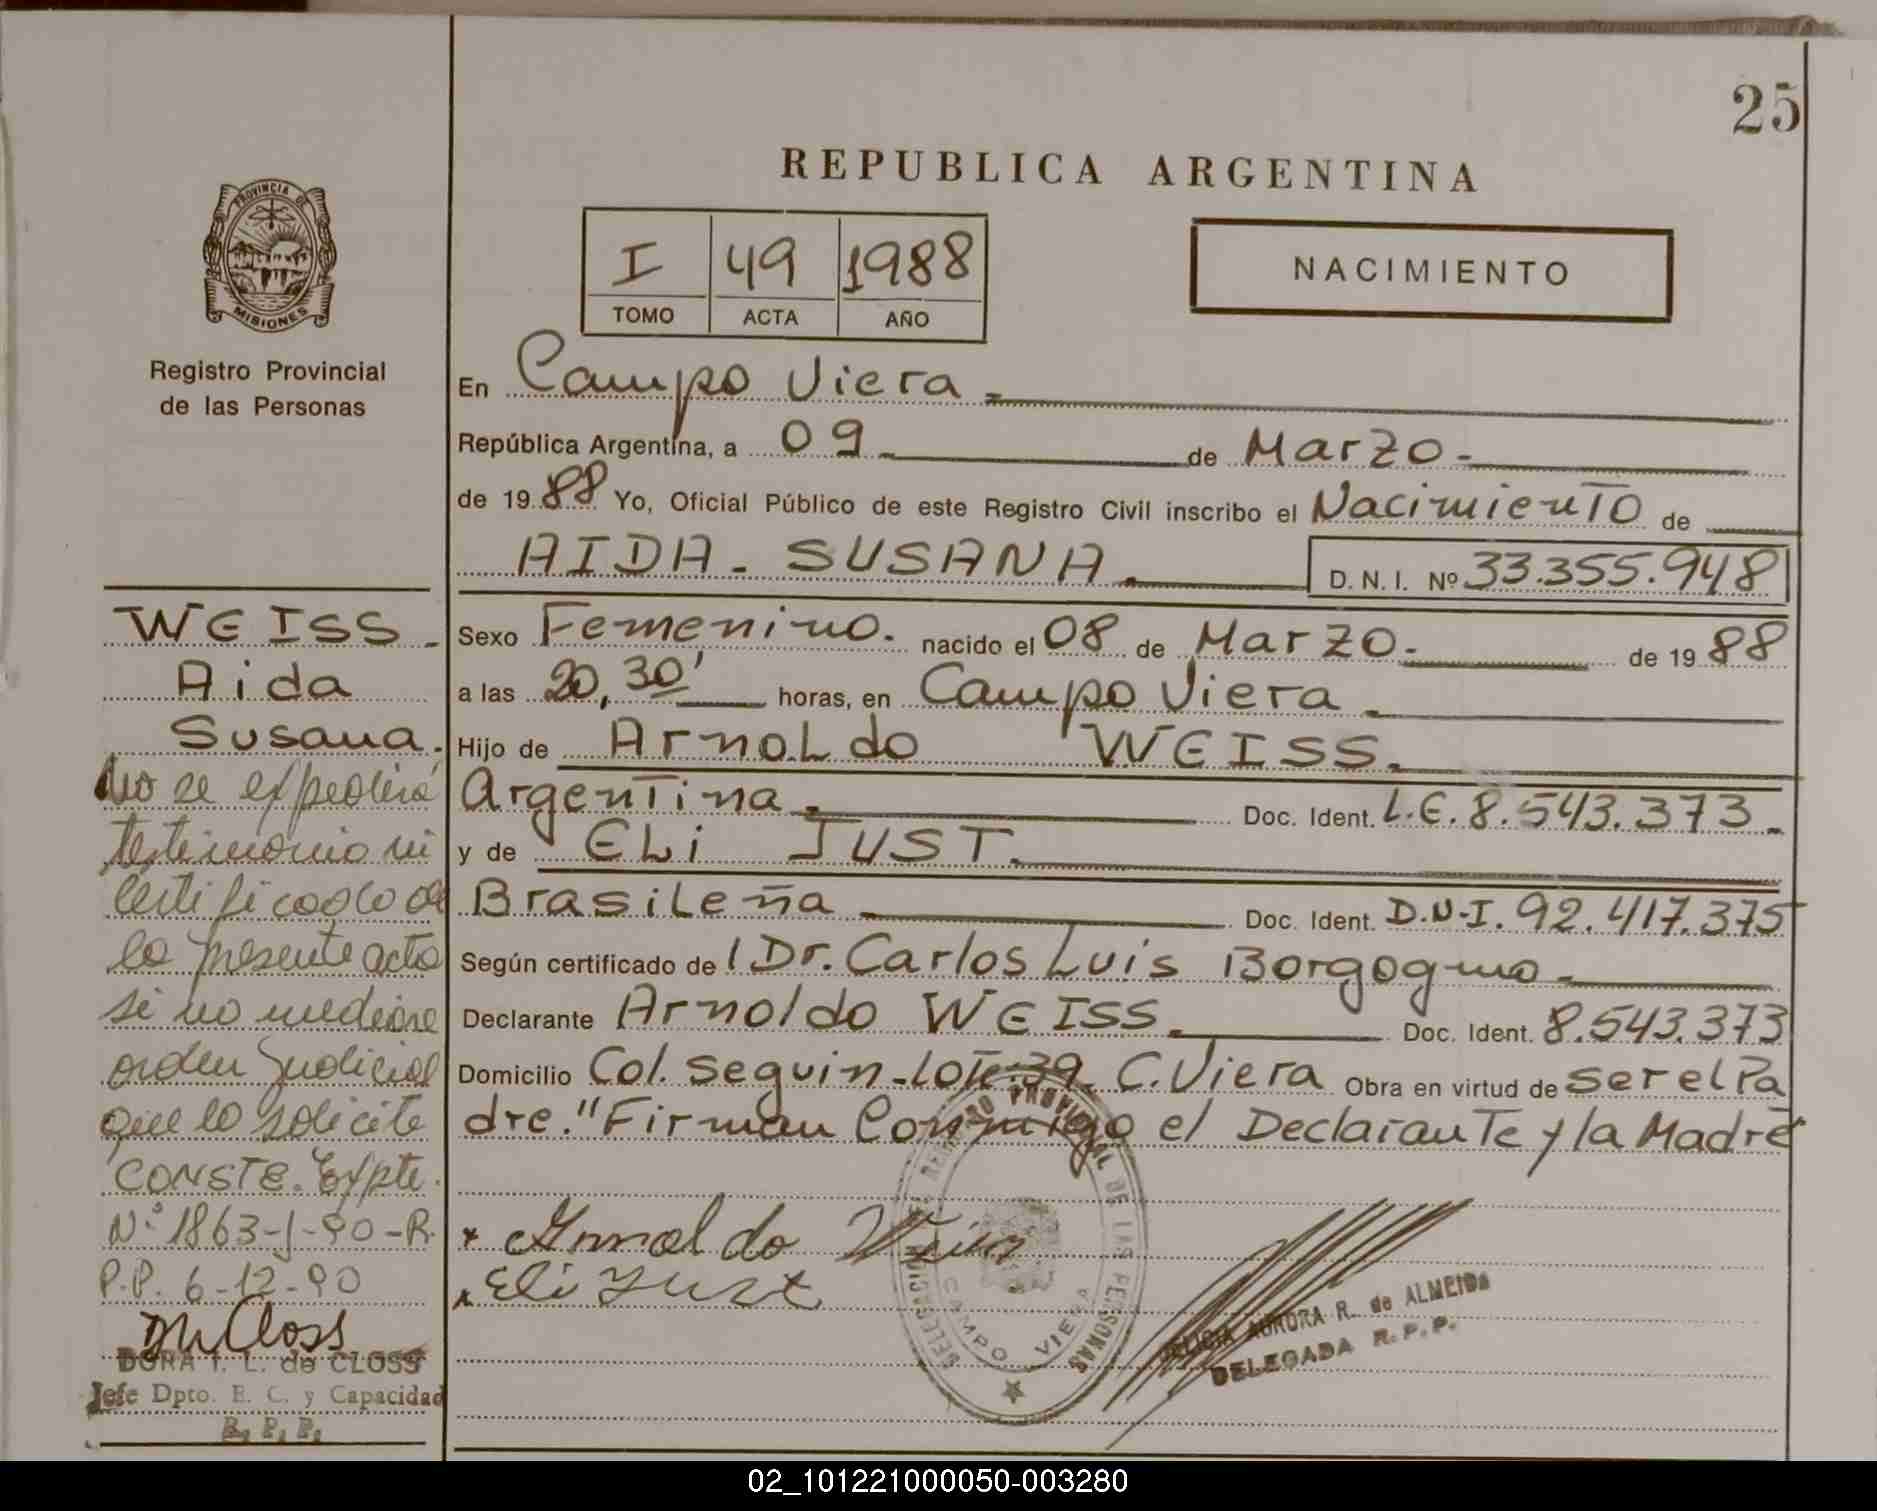 25
REPUBLICA ARGENTINA
PROVINCIA DE
MISIONES
Registro Provincial
de las Personas
I 49 1988
TOMO ACTA AÑO
NACIMIENTO
En Campo Viera
República Argentina, a 09 de Marzo
de 1988 Yo, Oficial Público de este Registro Civil inscribo el Nacimiento de
AIDA SUSANA D. N. I. Nº 33.355.948
Sexo Femenino. nacido el 08 de Marzo. de 1988
a las 20,30' horas, en Campo Viera
Hijo de Arnoldo WEISS.
Argentina Doc. Ident. L.E. 8.543.373
y de ELi JUST.
Brasileña Doc. Ident. D.N.I. 92.417.375
Según certificado de l Dr. Carlos Luis Borgogno
Declarante Arnoldo WEISS. Doc. Ident. 8.543.373
Domicilio Col. Seguin-Lote:39 C. Viera Obra en virtud de ser el Pa
dre." Firman Conmigo el Declarante y la Madre
Arnoldo Weiss
Eli Just
REGISTRO PROVINCIAL DE LAS PERSONAS
DELEGACION
CAMPO VIERA
FELICIA AURORA R. de ALMEIDA
DELEGADA R.P.P.
WEISS
Aida
Susana.
No se expedirá
testimonio ni
certificado de
la presente acta
si no mediare
orden judicial
que lo solicite
CONSTE. Expte.
Nº 1863-J-90-R.
P.P. 6-12-90
DORA I. L. de CLOSS
Jefe Dpto. E. C. y Capacidad
R. P. P.
02_101221000050-003280